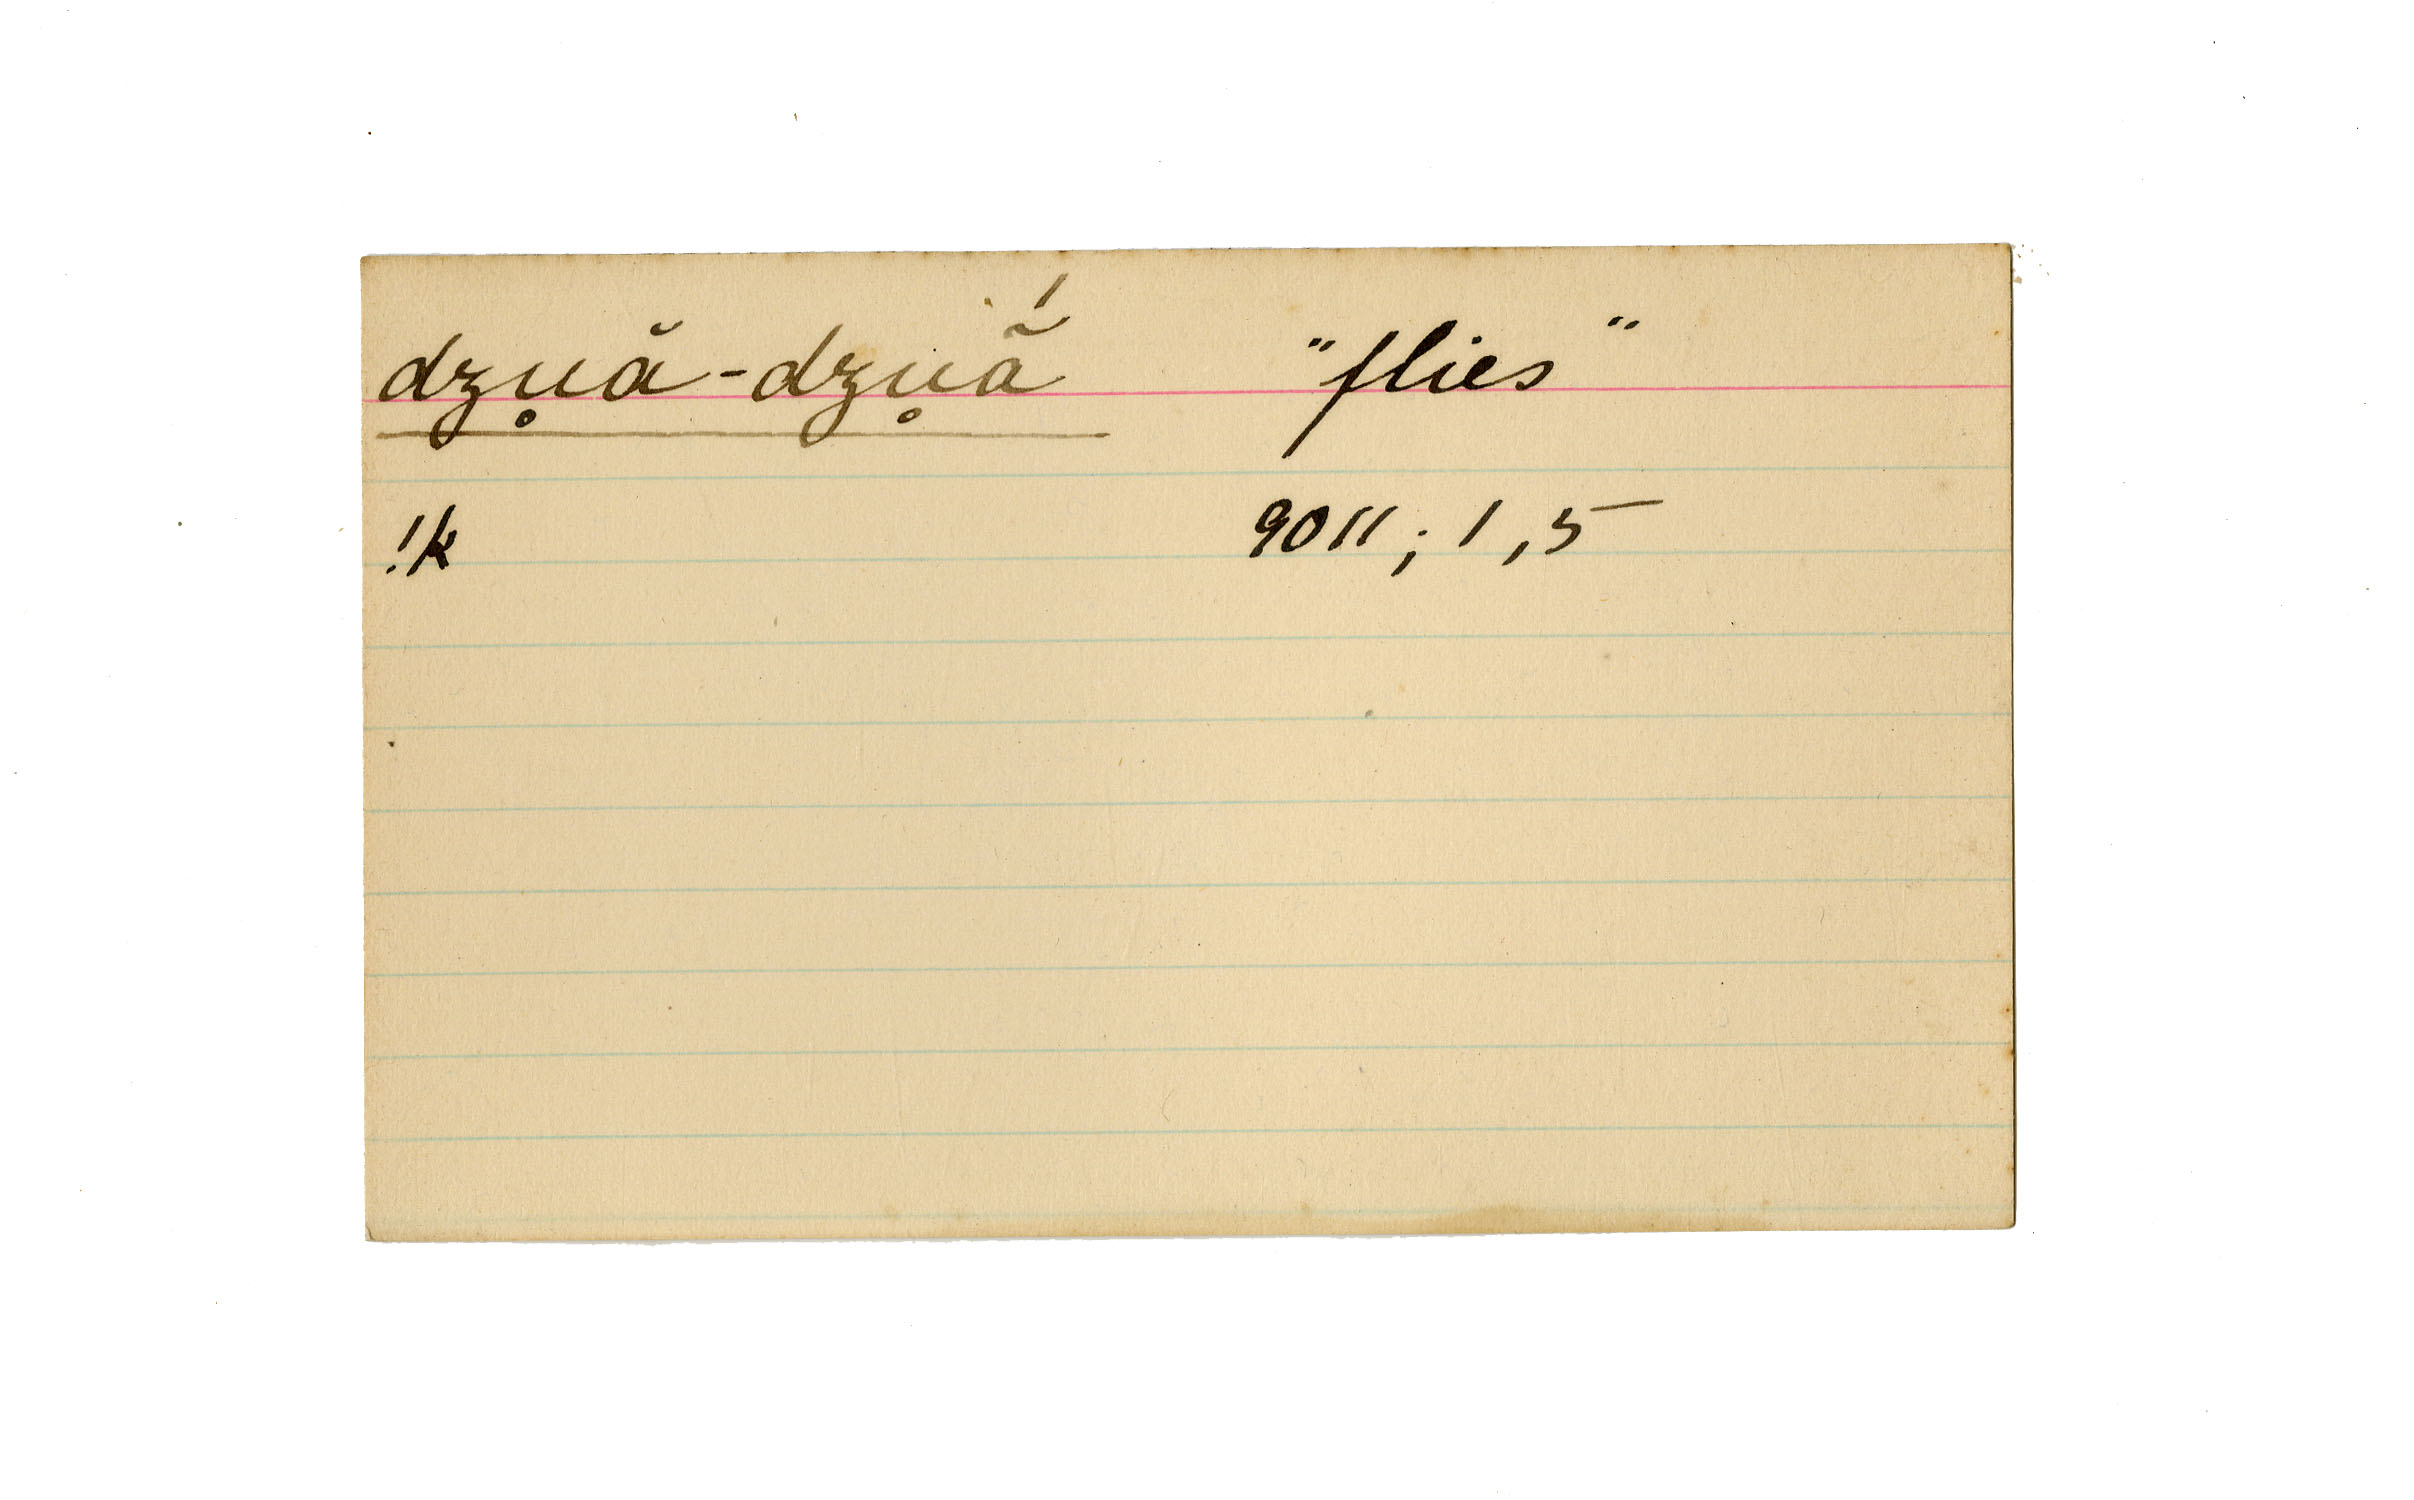 dzu̥ă-dzu̥ã́ "flies"
!k 9011; 1,5